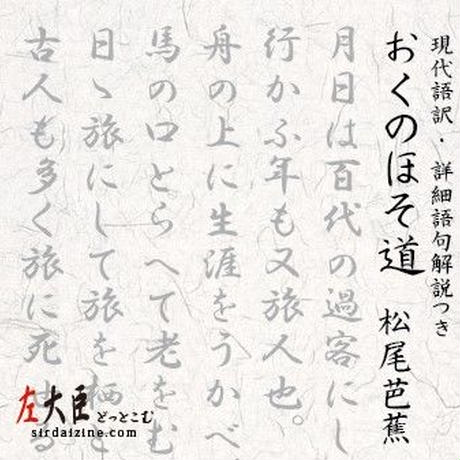 現代語訳・詳細語句解説つき
おくのほそ道 松尾芭蕉
月日は百代の過客にし
行かふ年も又旅人也。
舟の上に生涯をうかべ
馬の口とらへて老をむ
日ゝ旅にして旅を栖と
古人も多く旅に死せる
左大臣どっとこむ
sirdaizine.com